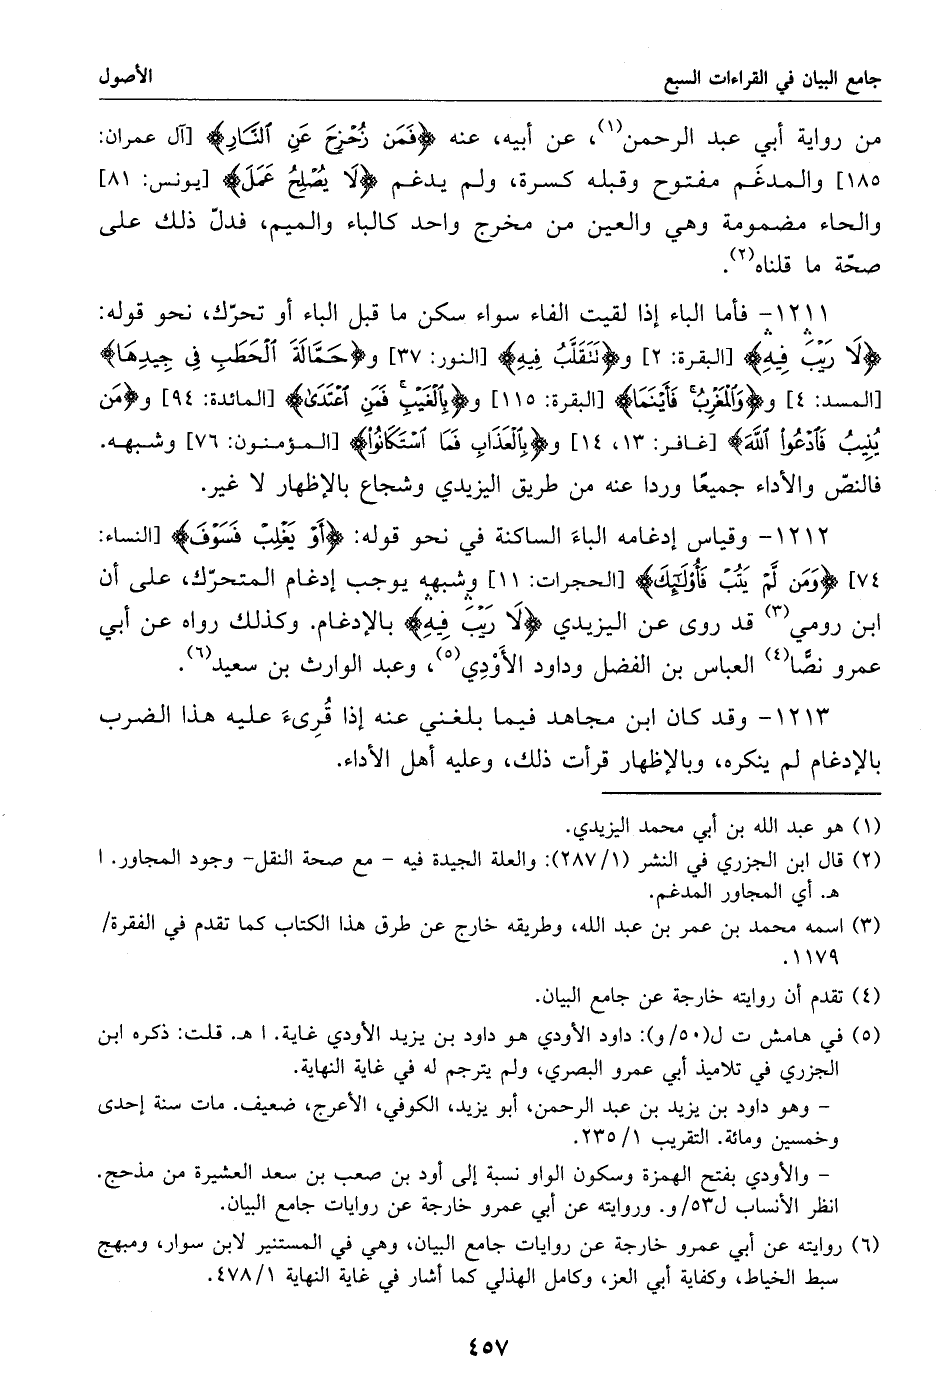 جامع البيان في القراءات السبع
الأصول
من رواية أبي عبد الرحمن(١)، عن أبيه، عنه ﴿فَمَن زُحْزِحَ عَنِ ٱلنَّارِ﴾ [آل عمران:
١٨٥] والمدغَم مفتوح وقبله كسرة، ولم يدغم ﴿لَا يُصْلِحُ عَمَلَ﴾ [يونس: ٨١]
والحاء مضمومة وهي والعين من مخرج واحد كالباء والميم، فدلّ ذلك على
صحّة ما قلناه(٢).
١٢١١- فأما الباء إذا لقيت الفاء سواء سكن ما قبل الباء أو تحرّك، نحو قوله:
﴿لَا رَيْبَ فِيهِ﴾ [البقرة: ٢] و﴿تَتَقَلَّبُ فِيهِ﴾ [النور: ٣٧] و﴿حَمَّالَةَ ٱلْحَطَبِ فِى جِيدِهَا﴾
[المسد: ٤] و﴿وَٱلْمَغْرِبُ فَأَيْنَمَا﴾ [البقرة: ١١٥] و﴿بِٱلْغَيْبِ فَمَنِ ٱعْتَدَىٰ﴾ [المائدة: ٩٤] و﴿مَن
يُنِيبُ فَٱدْعُوا۟ ٱللَّهَ﴾ [غافر: ١٣، ١٤] و﴿بِٱلْعَذَابِ فَمَا ٱسْتَكَانُوا۟﴾ [المؤمنون: ٧٦] وشبهه.
فالنصّ والأداء جميعًا وردا عنه من طريق اليزيدي وشجاع بالإظهار لا غير.
١٢١٢- وقياس إدغامه الباءَ الساكنة في نحو قوله: ﴿أَوْ يَغْلِبْ فَسَوْفَ﴾ [النساء:
٧٤] ﴿وَمَن لَّمْ يَتُبْ فَأُو۟لَٰٓئِكَ﴾ [الحجرات: ١١] وشبهه يوجب إدغام المتحرّك، على أن
ابن رومي(٣) قد روى عن اليزيدي ﴿لَا رَيْبَ فِيهِ﴾ بالإدغام. وكذلك رواه عن أبي
عمرو نصًّا(٤) العباس بن الفضل وداود الأَوْدِي(٥)، وعبد الوارث بن سعيد(٦).
١٢١٣- وقد كان ابن مجاهد فيما بلغني عنه إذا قُرِىءَ عليه هذا الضرب
بالإدغام لم ينكره، وبالإظهار قرأت ذلك، وعليه أهل الأداء.
(١) هو عبد الله بن أبي محمد اليزيدي.
(٢) قال ابن الجزري في النشر (٢٨٧/١): والعلة الجيدة فيه - مع صحة النقل- وجود المجاور. ا
هـ. أي المجاور المدغم.
(٣) اسمه محمد بن عمر بن عبد الله، وطريقه خارج عن طرق هذا الكتاب كما تقدم في الفقرة/
١١٧٩.
(٤) تقدم أن روايته خارجة عن جامع البيان.
(٥) في هامش ت ل(٥٠/و): داود الأودي هو داود بن يزيد الأودي غاية. ا هـ. قلت: ذكره ابن
الجزري في تلاميذ أبي عمرو البصري، ولم يترجم له في غاية النهاية.
- وهو داود بن يزيد بن عبد الرحمن، أبو يزيد، الكوفي، الأعرج، ضعيف. مات سنة إحدى
وخمسين ومائة. التقريب ١/ ٢٣٥.
- والأودي بفتح الهمزة وسكون الواو نسبة إلى أود بن صعب بن سعد العشيرة من مذحج.
انظر الأنساب ل٥٣/و. وروايته عن أبي عمرو خارجة عن روايات جامع البيان.
(٦) روايته عن أبي عمرو خارجة عن روايات جامع البيان، وهي في المستنير لابن سوار، ومبهج
سبط الخياط، وكفاية أبي العز، وكامل الهذلي كما أشار في غاية النهاية ٤٧٨/١.
٤٥٧